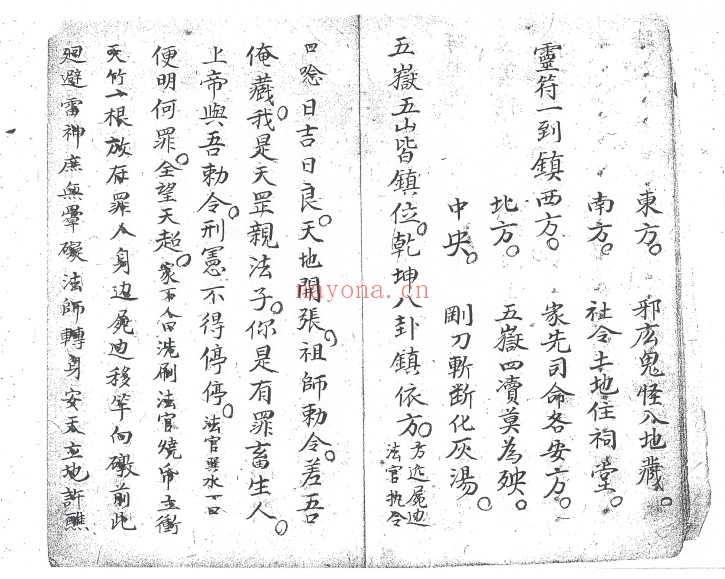 東方。邪広鬼怪入地藏。
南方。社令土地住祠堂。
靈符一到鎮西方。家先司命各安方。
北方。五嶽四瀆莫為殃。
中央。剛刀斬断化灰湯。
五嶽五山皆鎮位。乾坤八卦鎮依方。方近屍边法官执令
口唸日吉日良。天地開張。祖師勅令。差吾
俺藏。我是天罡親法子。你是有罪畜生人。
上帝與吾勅令。刑憲不得停停。法官噀水一口
便明何罪。全望天超。家下人曰洗刷法官燒帋立衝
天竹一根放在罪人身边屍边移竿向礅前此
廻避雷神庶無罣礙法師轉身安天立地許醮
nayona.cn